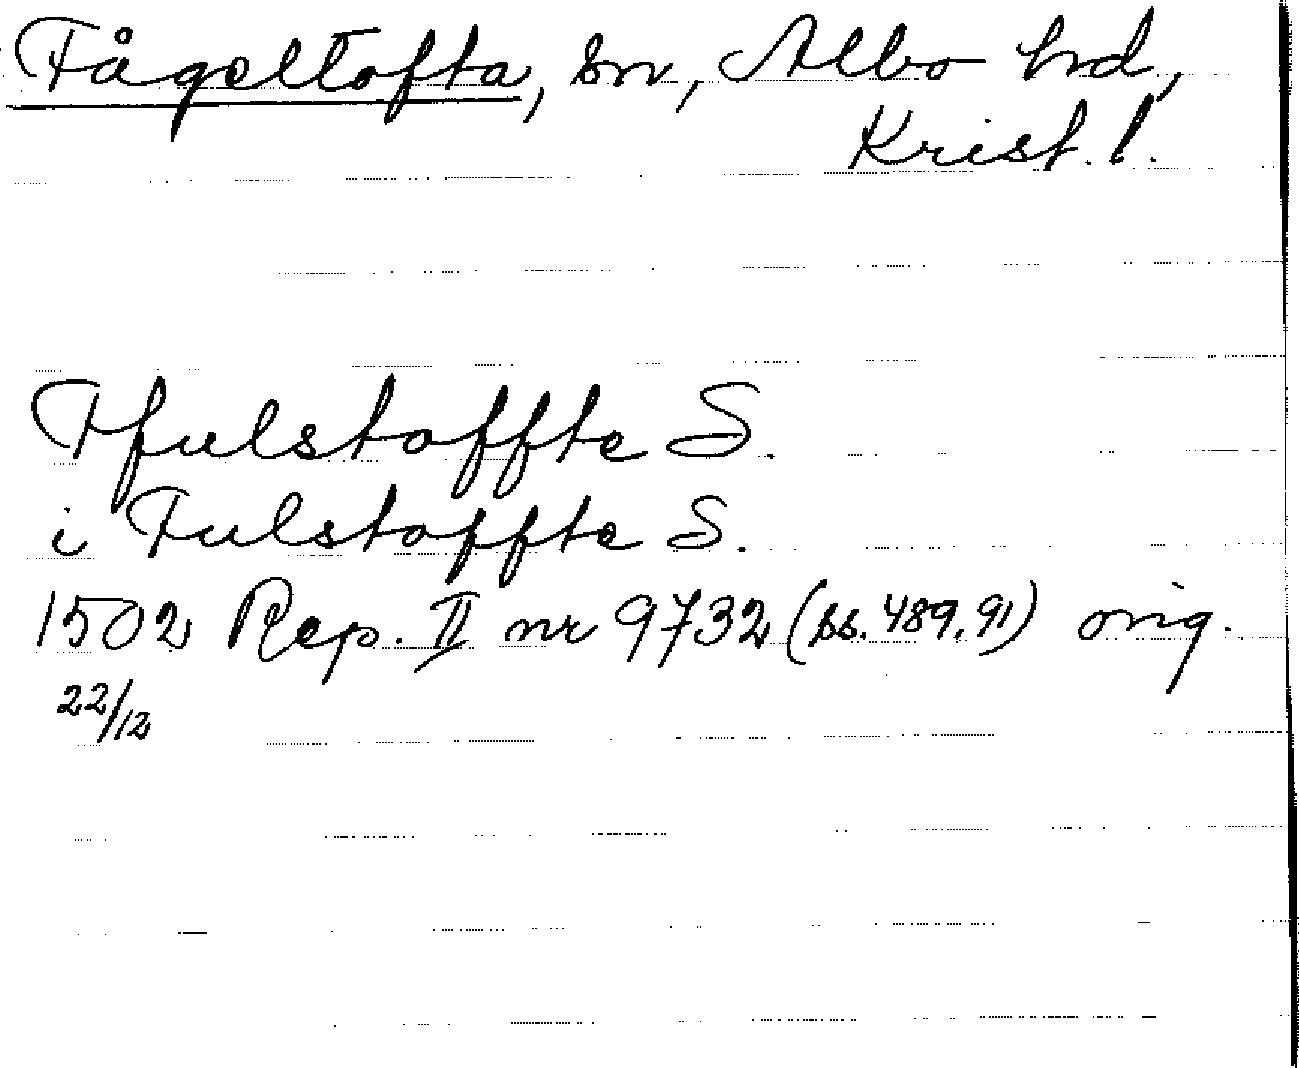 Fågeltofta, sn, Albo hd,
Krist. l.
Ffulstoffte S.
i Fulstoffte S.
1502 Rep. II nr 9732 (ss. 489, 91) orig.
22/12